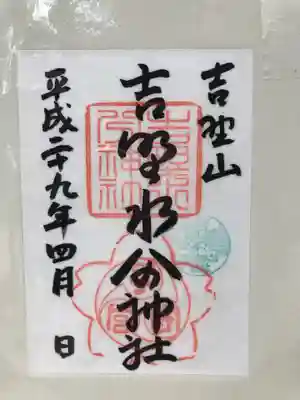 吉野山
吉野水分神社
平成二十九年四月 日